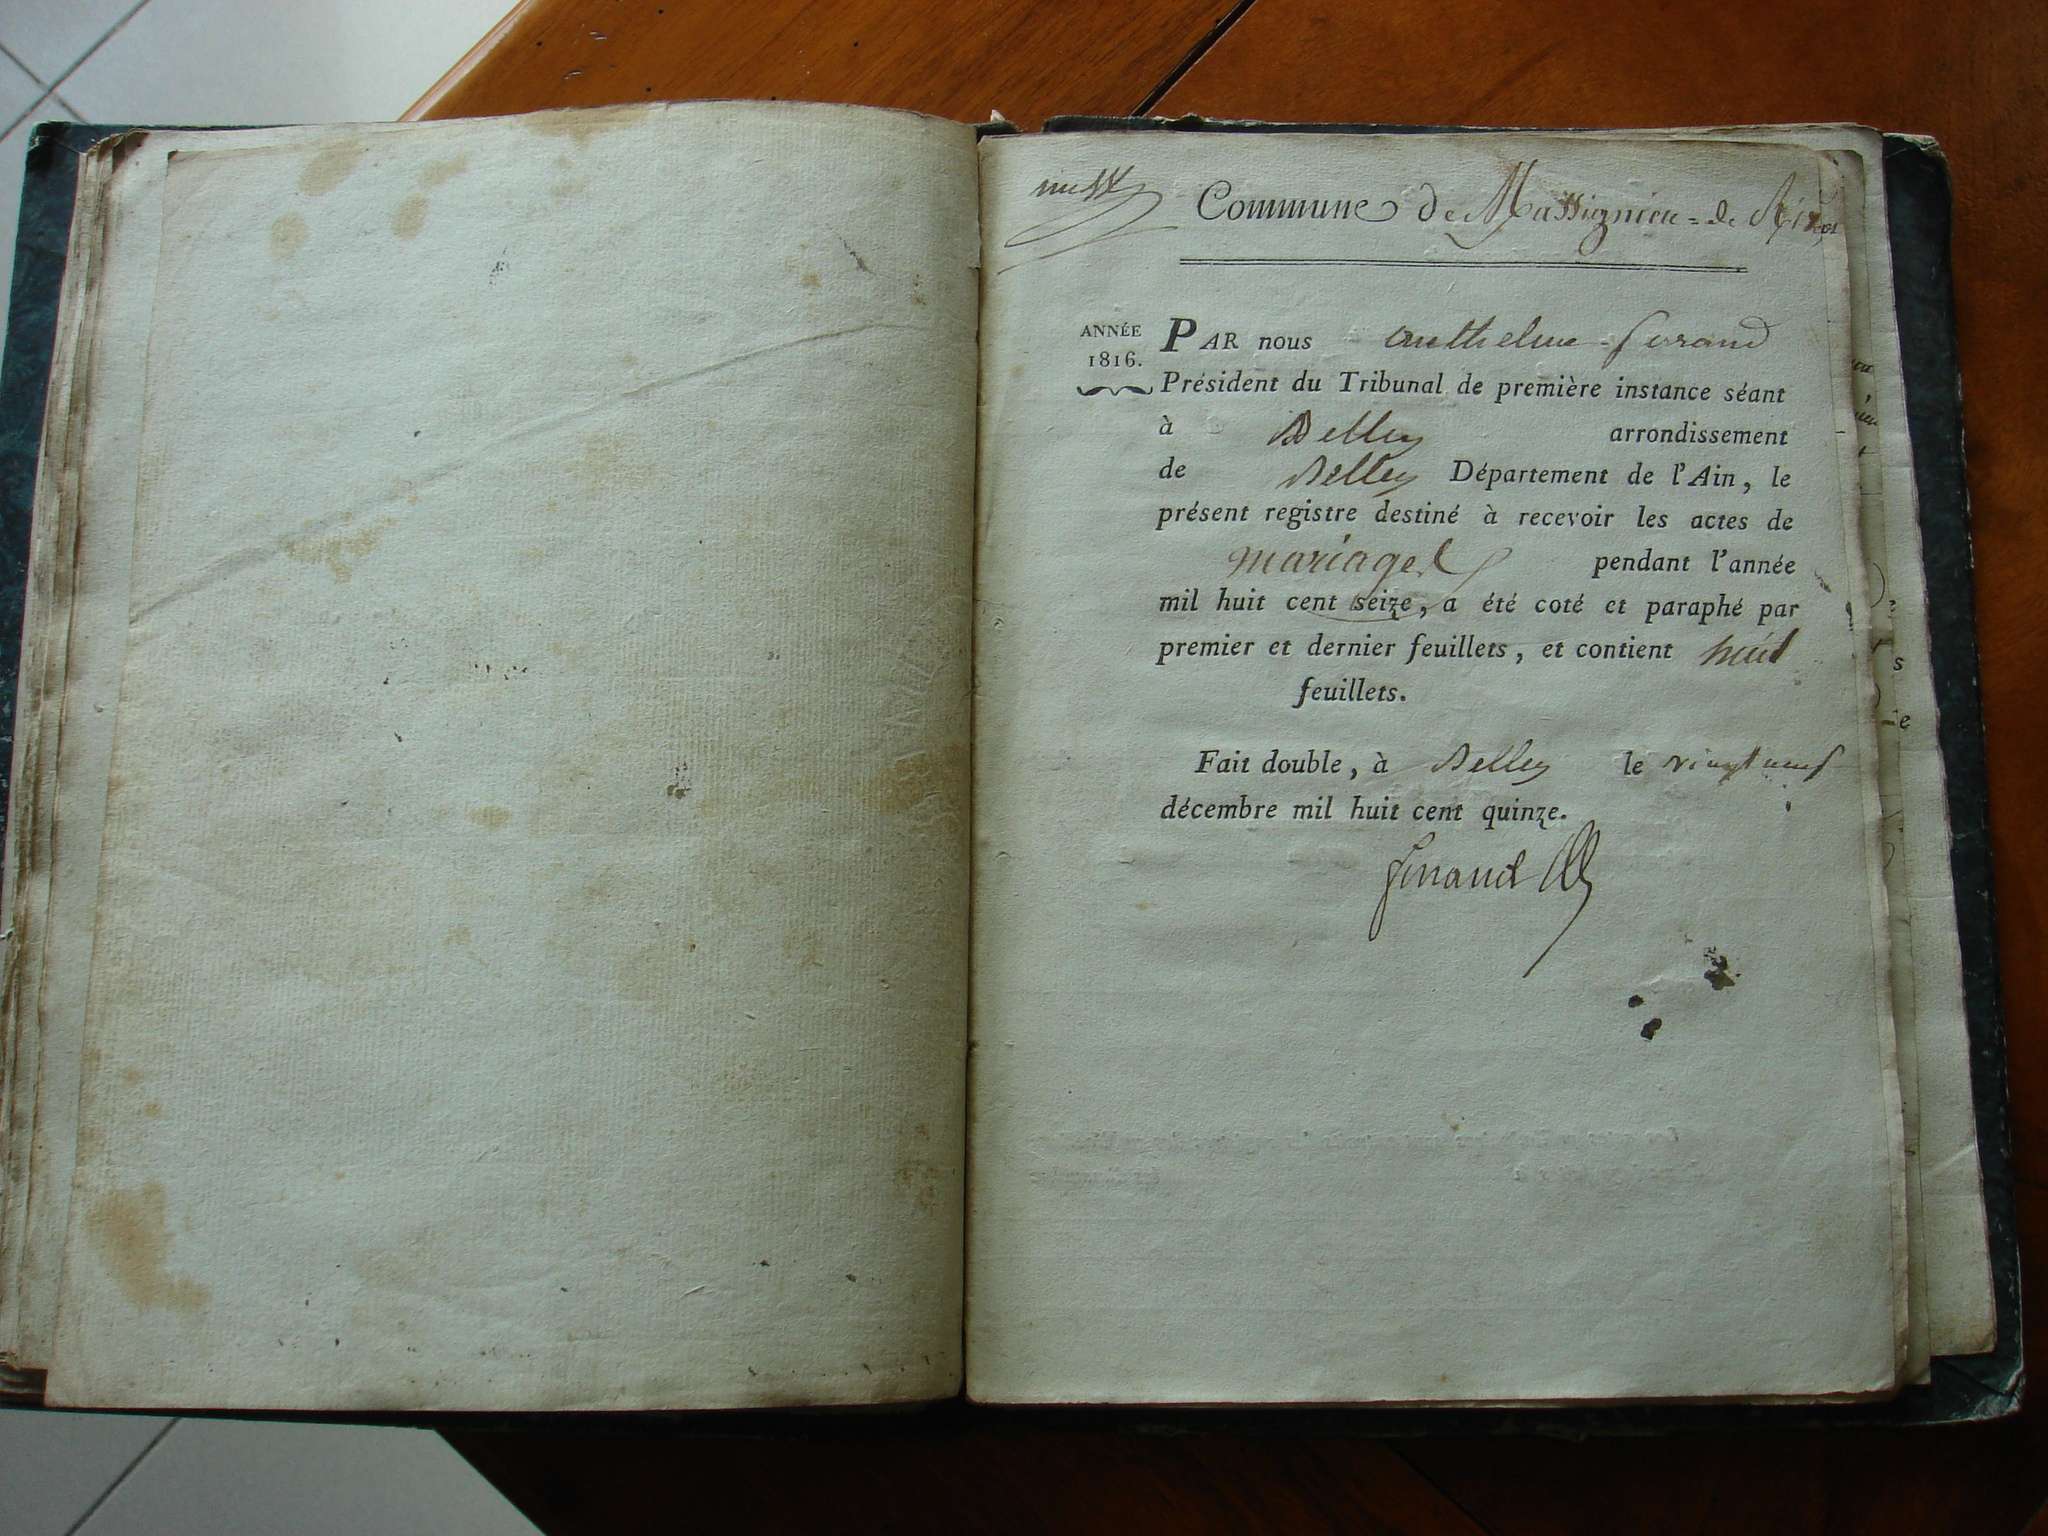 Commune de Massignieu = de Rives
ANNÉE
1816.
PAR nous Anthelme ferrand
Président du Tribunal de première instance séant
à Belley arrondissement
de Belley Département de l'Ain, le
présent registre destiné à recevoir les actes de
mariages pendant l'année
mil huit cent seize, a été coté et paraphé par
premier et dernier feuillets, et contient huit
feuillets.
Fait double, à Belley le vingt neuf
décembre mil huit cent quinze.